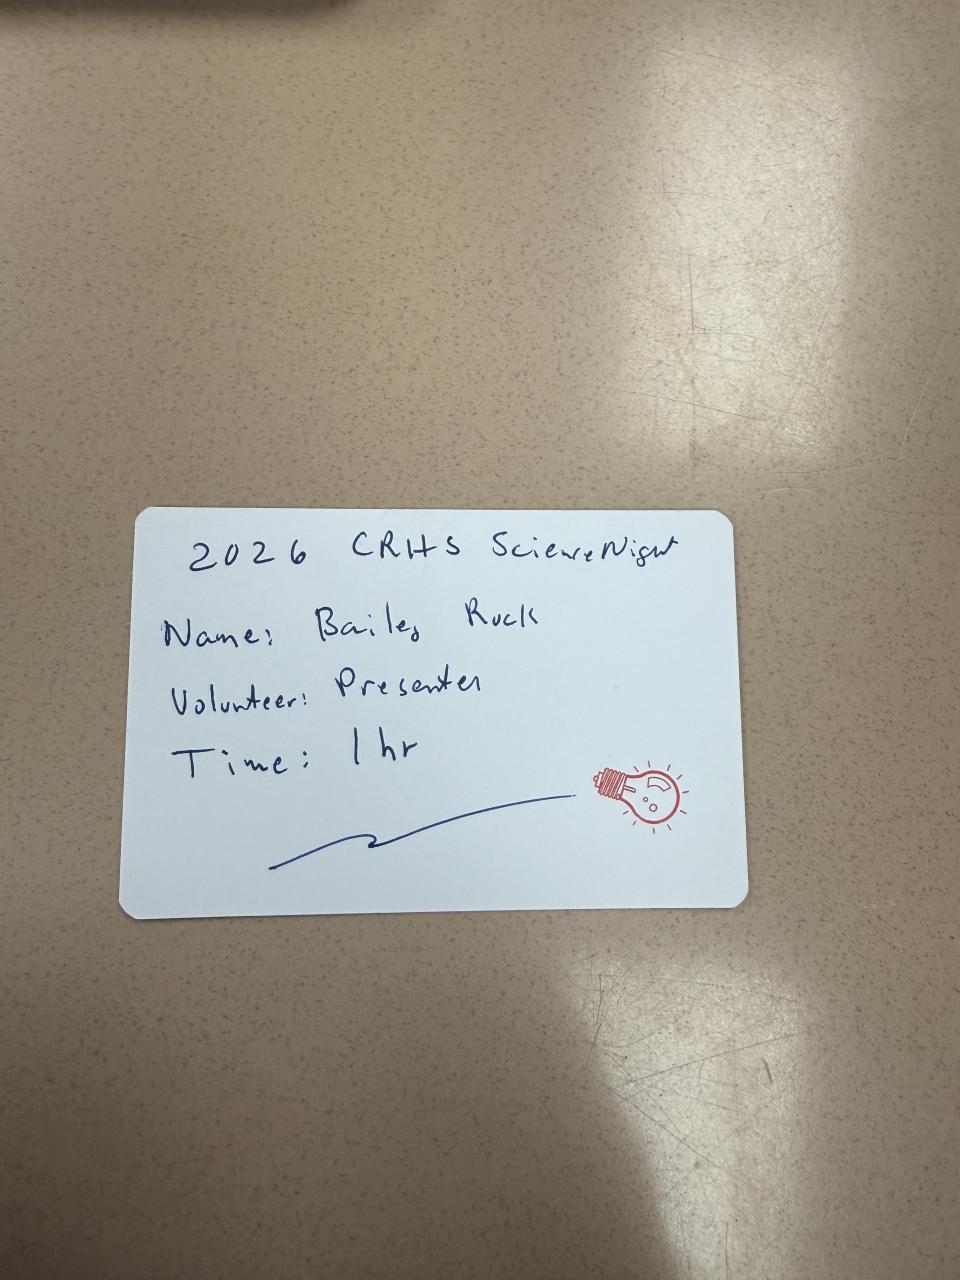 2026 CRHS Science Night
Name: Bailey Ruck
Volunteer: Presenter
Time: 1 hr